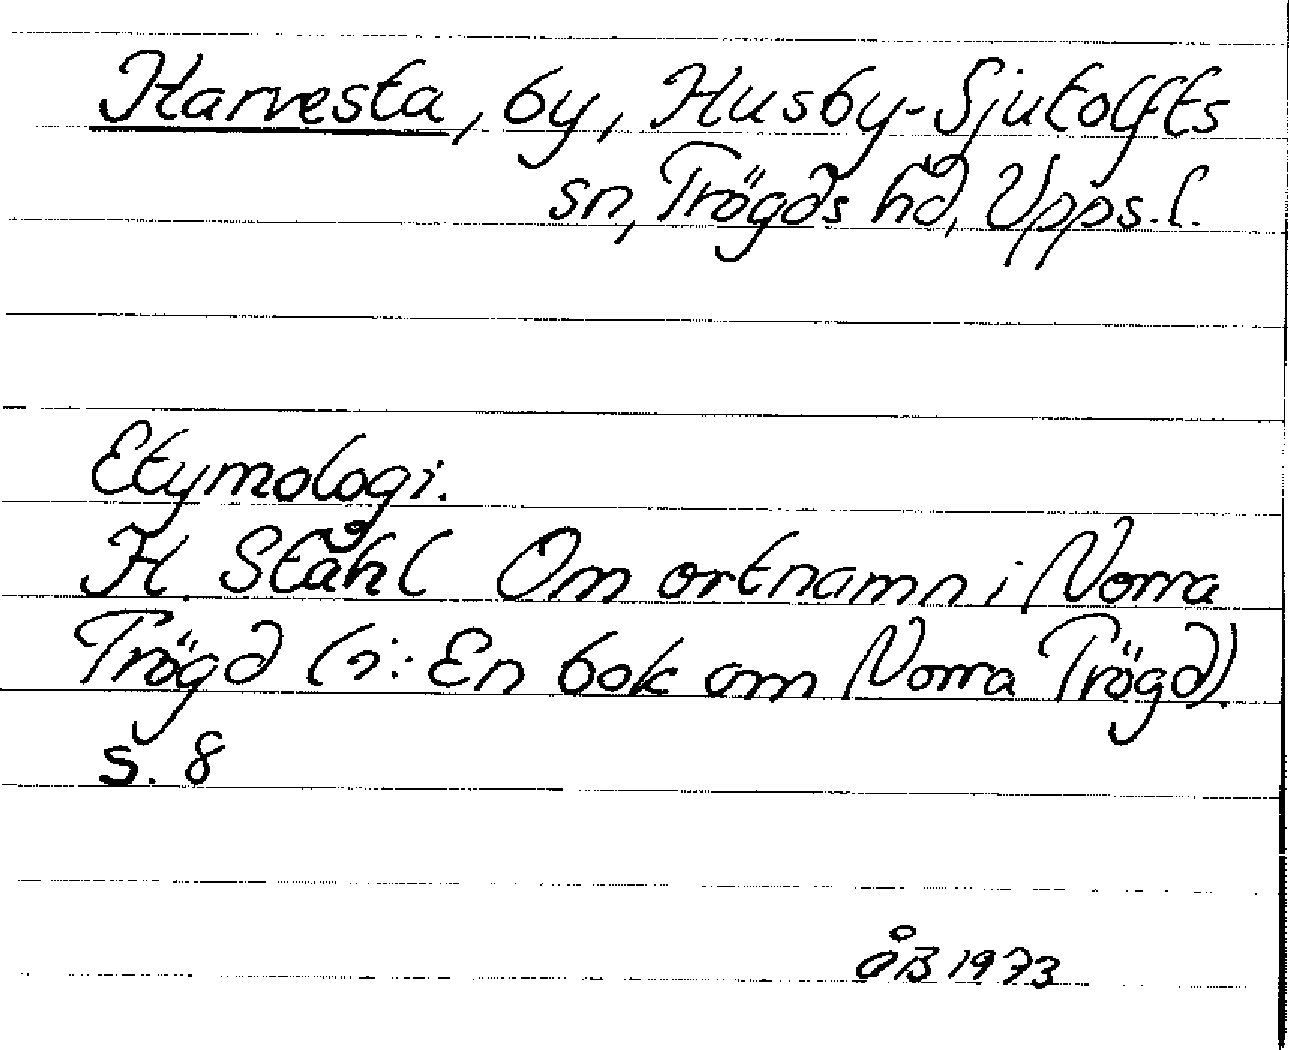 Harvesta, by, Husby-Sjutolfts
sn, Trögds hd, Upps. l.
Etymologi.
H. Ståhl Om ortnamn i Norra
Trögd (i: En bok om Norra Trögd).
s. 8
åB 1973